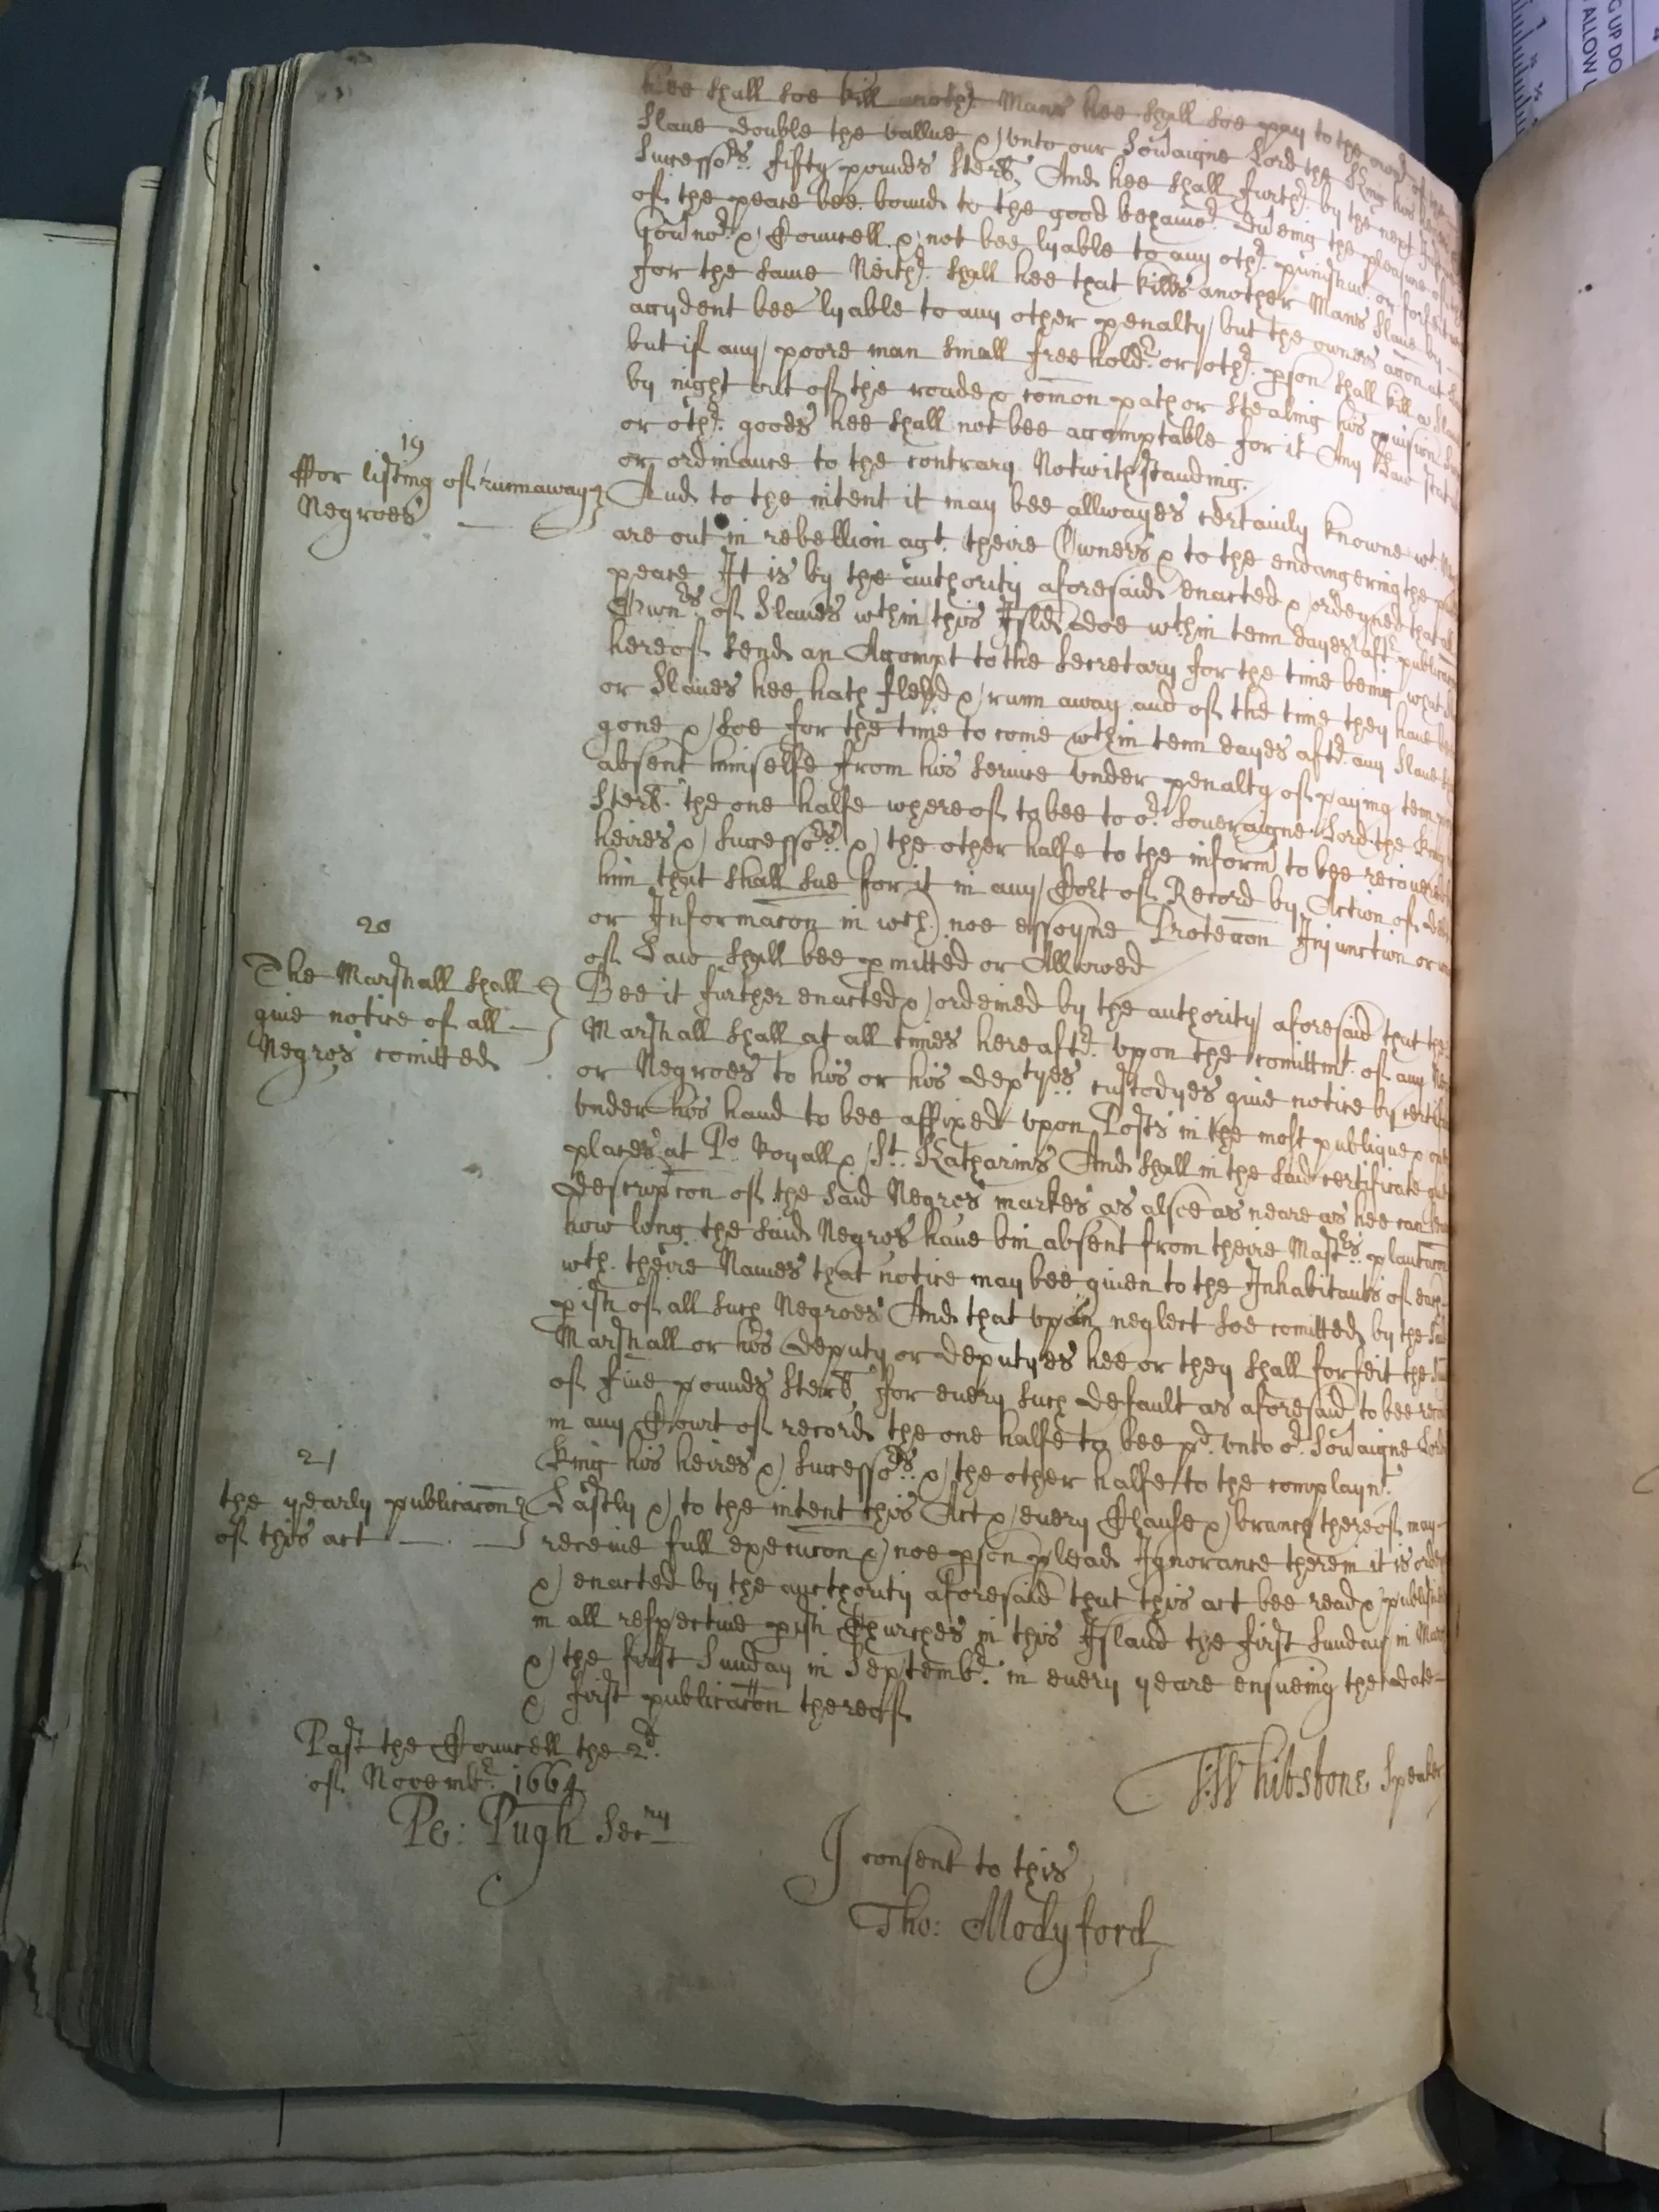 hee shall soe kill anothr. Mans hee shall soe pay to the ownr of the
Slaue double the vallue & vnto our Sou'aigne Lord the King his
Successors. fifty pounds Sterl. And hee shall furthr. by the next
of the peace bee bound to the good behauior. dureing the pleasure of
Gou'nor. & Councell & not bee lyable to any othr. punishmt. or forfeit
for the same Neithr. shall hee that kills another Mans Slaue by
accydent bee lyable to any other penalty but the owners accon at
but if any poore man small freeholdr. or othr. pson shall kill a Slaue
by night out of the roade & comon path or stealing his p'uision
or othr. goods hee shall not bee accomptable for it Any Law
or ordinance to the contrary Notwithstanding.
19
ffor listing of runnaway
Negroes
And to the intent it may bee allwayes certainly knowne wt.
are out in rebellion agt. theire Owners & to the endangering the
peace It is by the authority aforesaid enacted & ordeyned that
Owners. of Slaues wthin this Isld. doe wthin tenn dayes aftr. publicacon
hereof send an Accompt to the Secretary for the time being what
or Slaues hee hath fledd & runn away and of the time they haue
gone & soe for the time to come wthin tenn dayes aftr. any Slaue
absent himselfe from his seruice vnder penalty of paying tenn
Sterl. the one halfe whereof to bee to or. Soueraigne Lord the King
heires & Successors. & the other halfe to the informr to bee recouered
him that shall sue for it in any Cort of Record by Action of
or Informacon in wch. noe essoyne Protection Injunction or
of Law shall bee pmitted or Allowed
20
The Marshall shall
giue notice of all
Negros comitted
Bee it further enacted & ordeined by the authority aforesaid that the
Marshall shall at all times hereaftr. vpon the comittmt. of any
or Negroes to his or his deptyes. custodyes giue notice by
vnder his hand to bee affixed vpon Posts in the most publique &
places at Po. Royall & St. Katharins And shall in the said certificate
descripcon of the said Negros markes as alsoe as neare as hee can
how long the said Negros haue bin absent from theire Mastrs. plantacon
wth. theire Names that notice may bee giuen to the Inhabitants of each
pish of all such Negroes And that vpon neglect soe comitted by the
Marshall or his deputy or deputyes hee or they shall forfeit the
of fiue pounds Sterl. for euery such default as aforesaid to bee
in any Court of record the one halfe to bee pd. vnto or. Sou'aigne Lord
King his heires & Successors. & the other halfe to the complaynt.
21
the yearly publicacon
of this act
Lastly & to the intent this Act & euery Clause & branch thereof may
receiue full execucon & noe pson plead Ignorance therein it is
& enacted by the aucthority aforesaid that this act bee read & publish
in all respectiue pish Churches in this Island the first Sunday in
& the first Sunday in Septembr. in euery yeare ensueing the date
& first publicacon thereof
Past the Councell the 2d.
of Novembr. 1664
Pe: Pugh Secry
Whitstone Speaker
I consent to this
Tho: Modyford